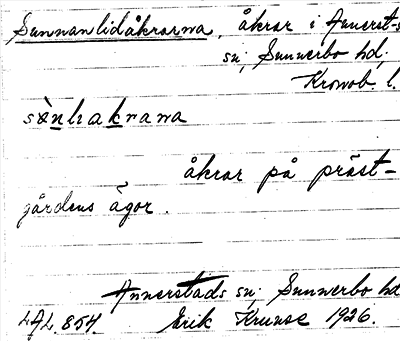 Sunnanlidåkrarna, åkrar i Annerst-s
sn, Sunnerbo hd,
Kronob. l.
sònliakrana
åkrar på präst-
gårdens ägor.
Annerstads sn, Sunnerbo hd
LAL. 854. Erik Kruuse 1926.